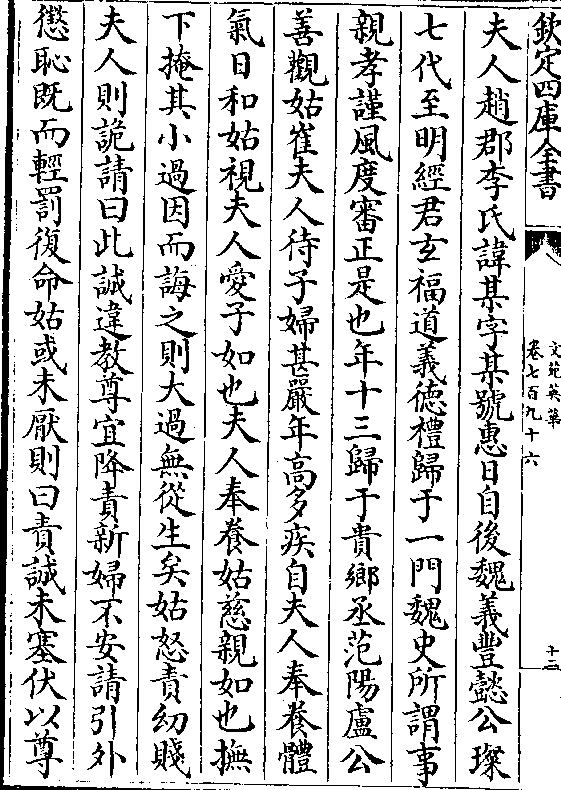 欽定四庫全書
文苑英華
卷七百九十六
十二
夫人趙郡李氏諱某字某號惠日自後魏義豐懿公璨
七代至明經君玄福道義德禮歸于一門魏史所謂事
親孝謹風度審正是也年十三歸于貴鄉丞范陽盧公
善觀姑崔夫人待子婦甚嚴年高多疾自夫人奉養體
氣日和姑視夫人愛子如也夫人奉養姑慈親如也撫
下掩其小過因而誨之則大過無從生矣姑怒責幼賤
夫人則詭請曰此誠違教尊宜降責新婦不安請引外
懲恥既而輕罰復命姑或未厭則曰責誠未塞伏以尊